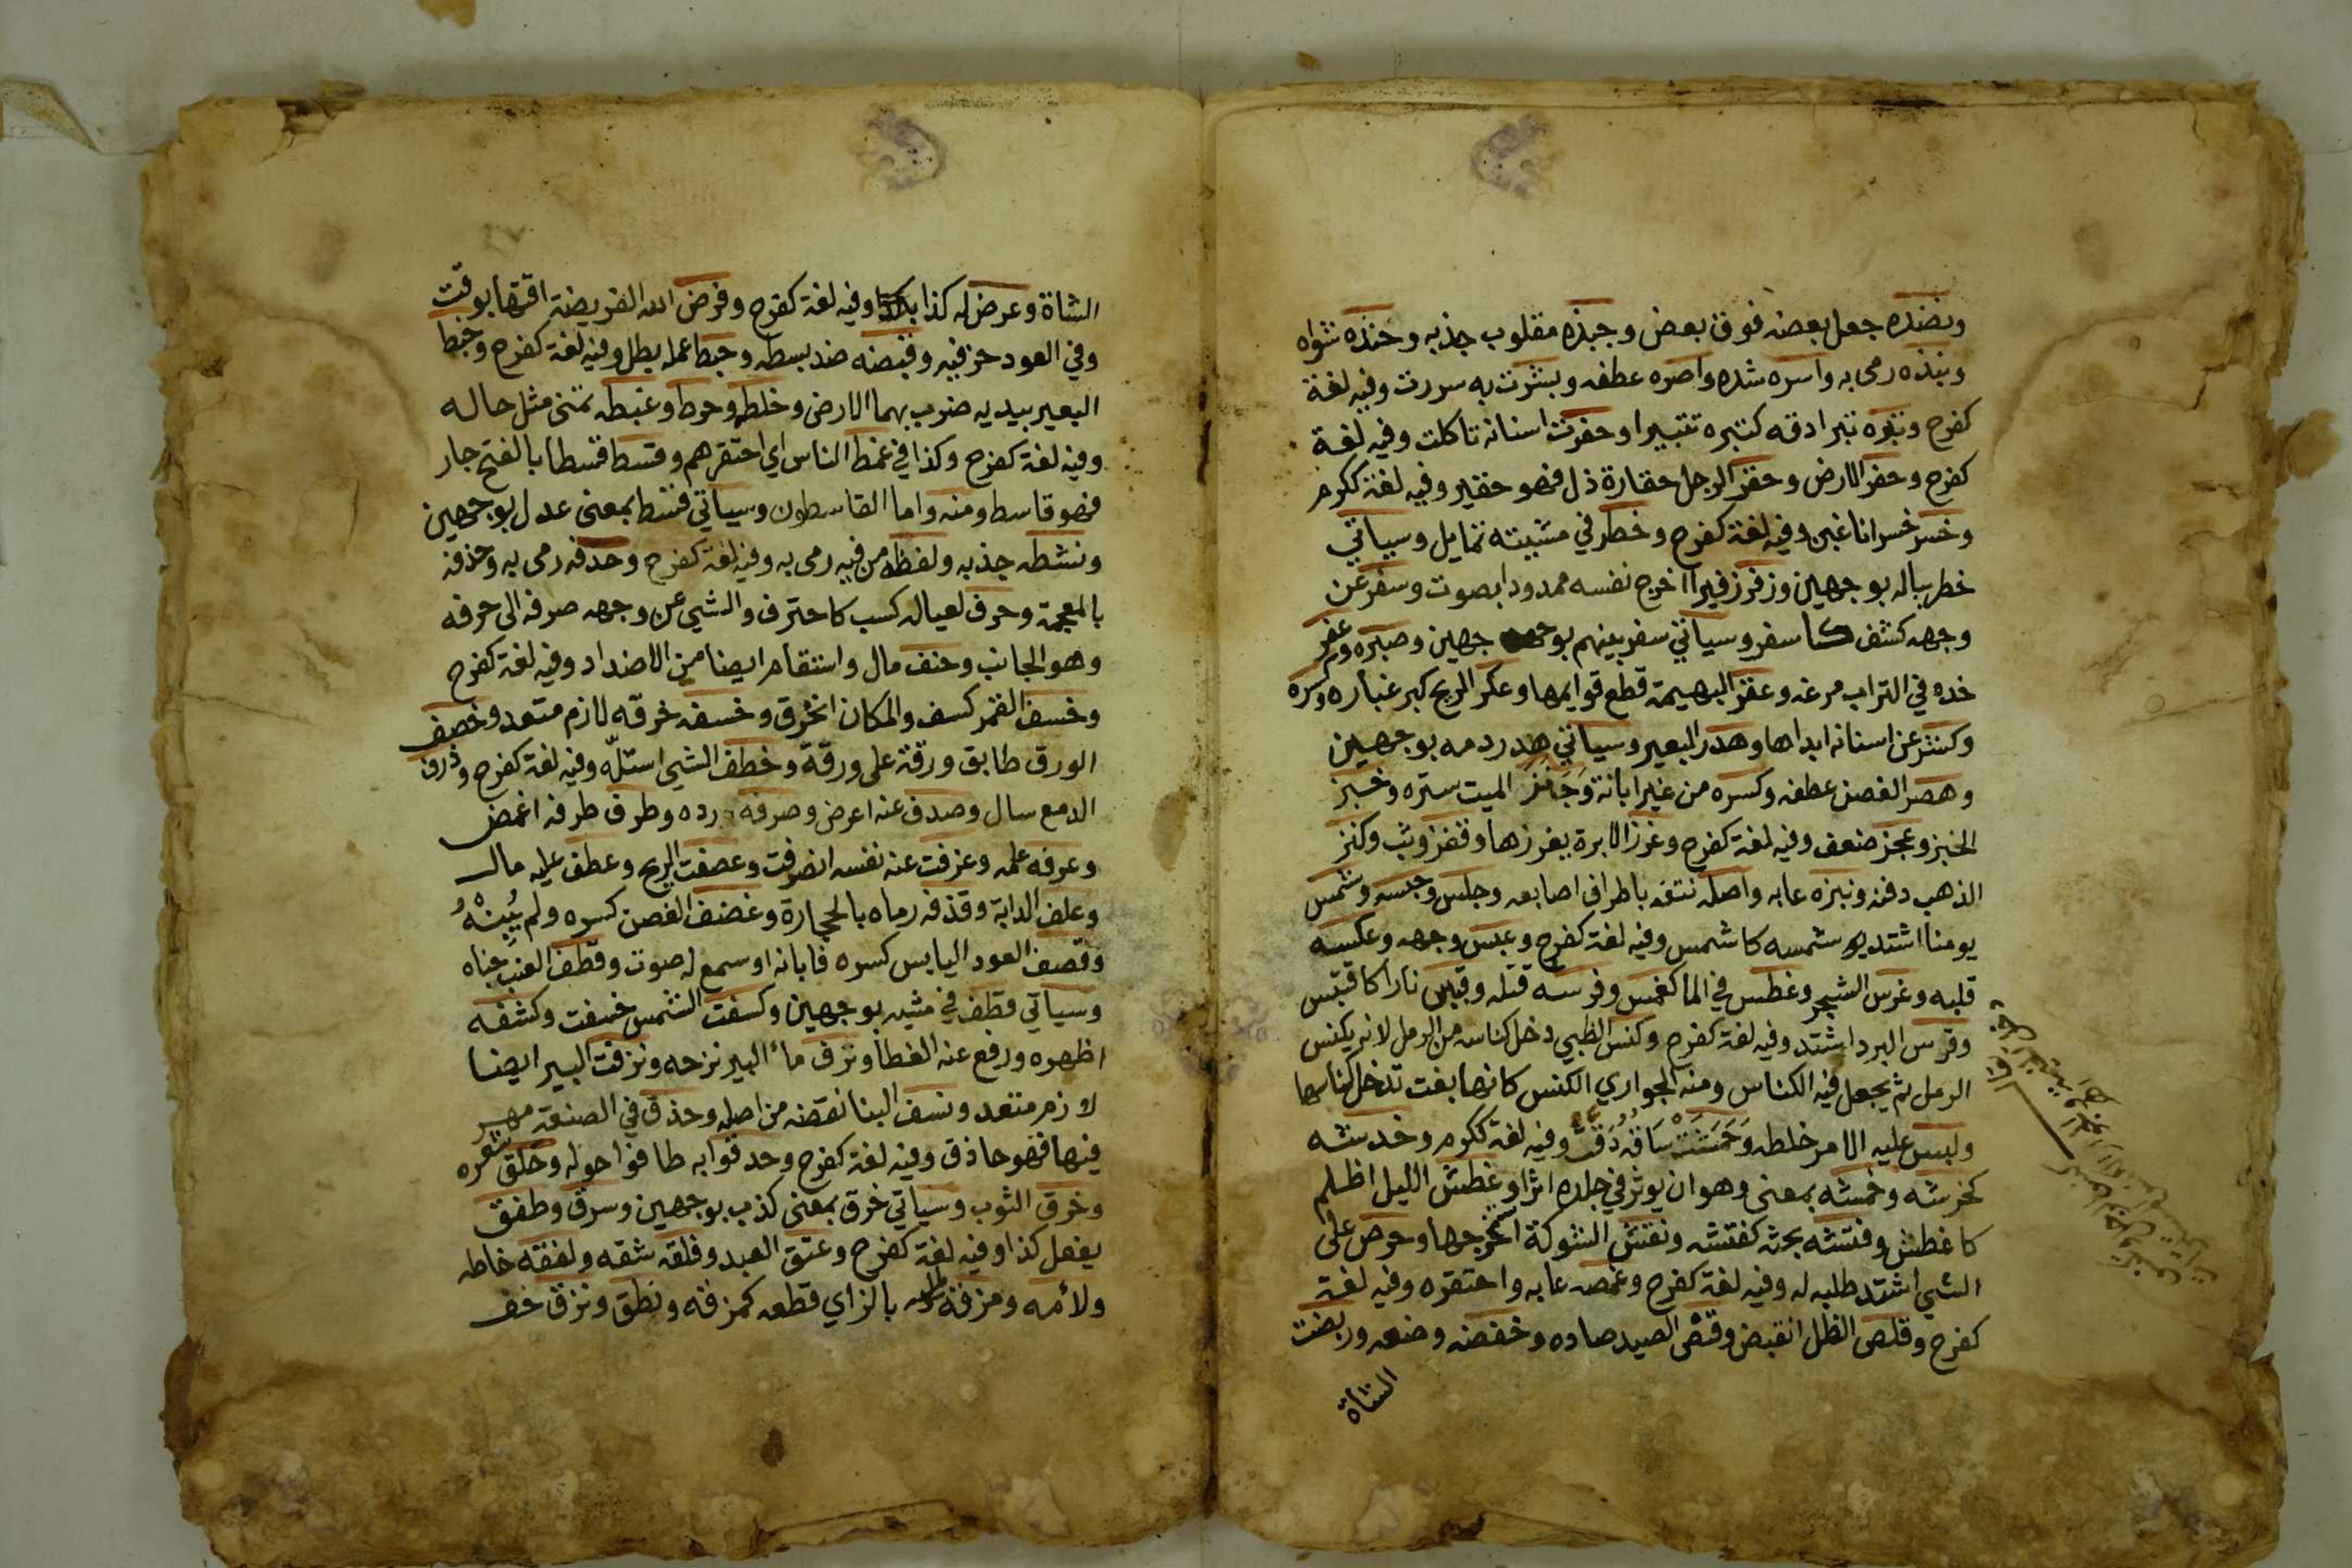 ونضده جعل بعضه فوق بعض وجبذه مقلوب جذبه وحنذه شواه
ونبذه رمى به واسره شده واصره عطفه وبشرت به سررت وفيه لغة
كفرح وتبره تبرا دقه كتبره تتبيرا وحفرت اسنانه تاكلت وفيه لغة
كفرح وحفر الارض وحقر الرجل حقارة ذل فهو حقير وفيه لغة ككرم
وخسر خسرانا غبن وفيه لغة كفرح وخطر في مشيته تمايل وسياتي
خطر بباله بوجهين وزفر زفيرا اخرج نفسه ممدودا بصوت وسفر عن
وجهه كشف كاسفر وسياتي سفر بينهم بوجهين وصبره وعفر
خده في التراب مرغه وعقر البهيمة قطع قوايمها وعكر الريح كبر غباره وكسره
وكشر عن اسنانه ابداها وهدر البعير وسياتي هدر دمه بوجهين
وهصر الغصن عطفه وكسره من غير ابانة وجنز الميت ستره وخبز
الخبز وعجز ضعف وفيه لغة كفرح وغرز الابرة يغرزها وقفز وثب وكنز
الذهب دفنه ونبزه عابه واصله نتفه باطراف اصابعه وجلس وحبسه وشمس
يومنا اشتد شمسه كاشمس وفيه لغة كفرح وعبس وجهه وعكسه
قلبه وغرس الشجر وغطس في الما كغمس وفرسه قتله وقبس نارا كاقتبس
وقرس البرد اشتد وفيه لغة كفرح وكنس الظبي دخل كناسه من الرمل لانه يكنس
الرمل ثم يجعل فيه الكناس ومنه الجواري الكنس كانها بغت تدخل كناسها
ولبس عليه الامر خلطه وحمشت ساقه دقت وفيه لغة ككرم وخدشه
كخرشه وخمشه بمعنى وهو ان يوثر في جلده اثرا وغطش الليل اظلم
كاغطش وفتشه بحثه كفتشه ونقش الشوكة استخرجها وحرص على
الشي اشتد طلبه له وفيه لغة كفرح وغمصه عابه واحتقره وفيه لغة
كفرح وقلص الظل انقبض وقنص الصيد صاده وخفضه وضعه وربضت
الشاة
الشاة وعرض له كذا وفيه لغة كفرح وفرض الله الفريضة اقتها بوقت
وفي العود حز فيه وقبضه ضد بسطه وحبط عمله بطل وفيه لغة كفرح وخبط
البعير بيديه ضرب بهما الارض وخلط وخرط وغبطه تمنى مثل حاله
وفيه لغة كفرح وكذا في غمط الناس اي احتقرهم وقسط قسطا بالفتح جار
فهو قاسط ومنه واما القاسطون وسياتي قسط بمعنى عدل بوجهين
ونشطه جذبه ولفظه من فيه رمى به وفيه لغة كفرح وحدفه رمى به وحذفه
بالمعجمة وحرف لعياله كسب كاحترف والشي عن وجهه صرفه الى حرفه
وهو الجانب وحنف مال واستقام ايضا من الاضداد وفيه لغة كفرح
وخسف القمر كسف والمكان انخرق وخسفه خرقه لازم متعد وخصف
الورق طابق ورقة على ورقة وخطف الشي استله وفيه لغة كفرح وذرف
الدمع سال وصدف عنه اعرض وصرفه رده وطرف طرفه اغمض
وعرفه علمه وعزفت عنه نفسه انصرفت وعصفت الريح وعطف عليه مال
وعلف الدابة وقذفه رماه بالحجارة وغضف الغصن كسره ولم يبنه
وقصف العود اليابس كسره فابانه او سمع له صوت وقطف العنب جناه
وسياتي قطف في مشيه بوجهين وكسفت الشمس خسفت وكشفه
اظهره ورفع عنه الغطا ونزف ماء البير نزحه ونزفت البير ايضا
لازم متعد ونسف البنا نقضه من اصله وحذق في الصنعة مهر
فيها فهو حاذق وفيه لغة كفرح وحدقوا به طافوا حوله وحلق شعره
وخرق الثوب وسياتي خرق بمعنى كذب بوجهين وسرق وطفق
يفعل كذا وفيه لغة كفرح وعتق العبد وفلقه شقه ولفقه خاطه
ولأمه ومزقه بالزاي قطعه كمزقه ونطق ونزق خف